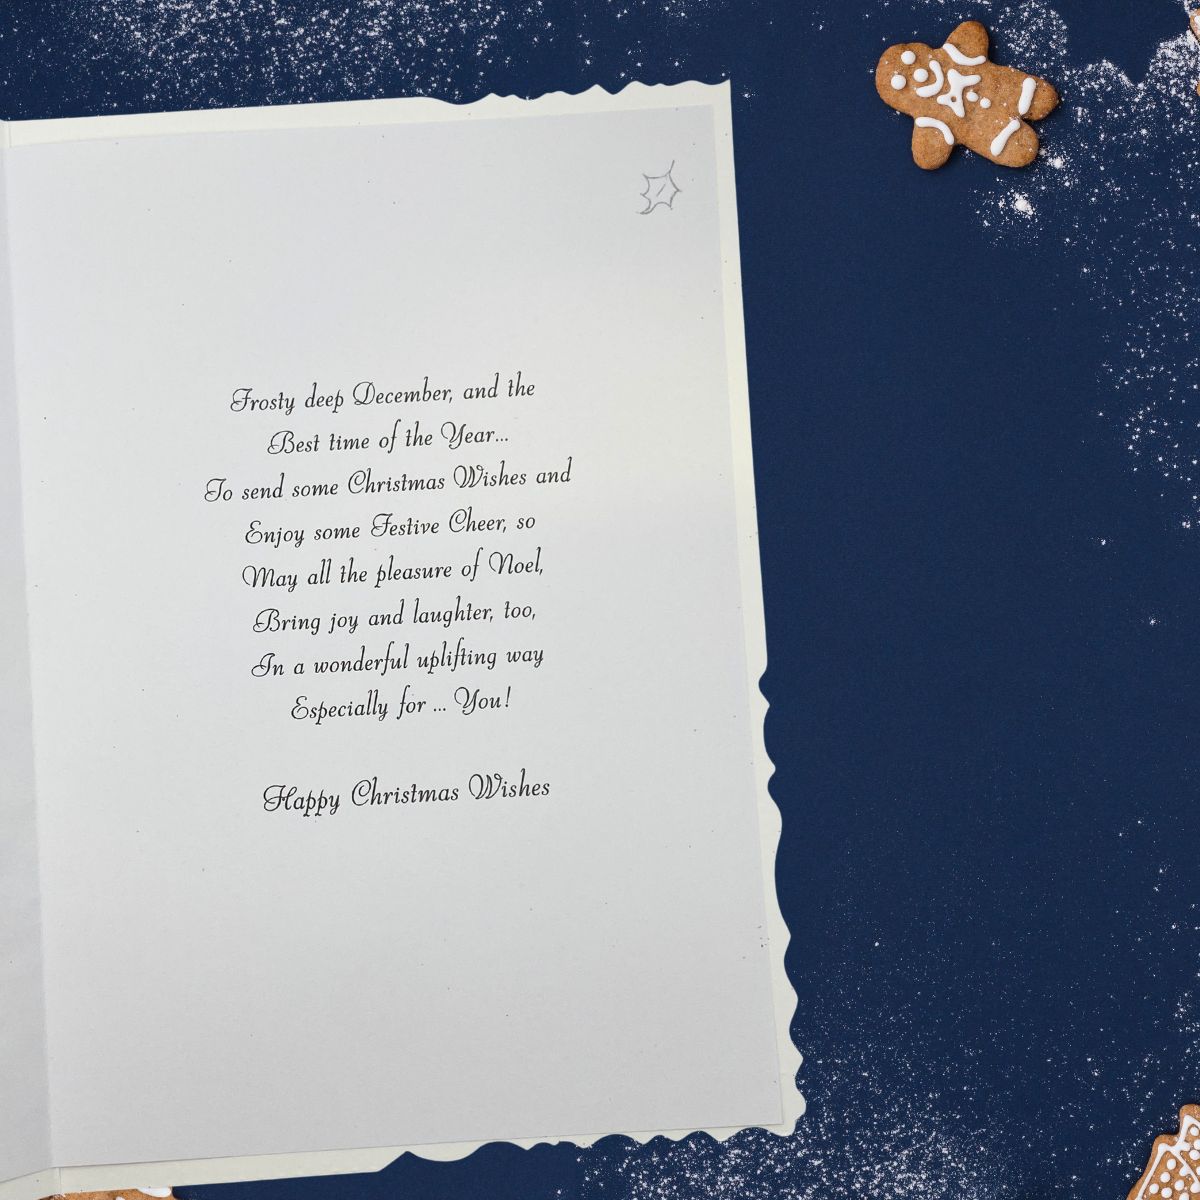 Frosty deep December, and the
Best time of the Year...
To send some Christmas Wishes and
Enjoy some Festive Cheer, so
May all the pleasure of Noel,
Bring joy and laughter, too,
In a wonderful uplifting way
Especially for ... You!
Happy Christmas Wishes